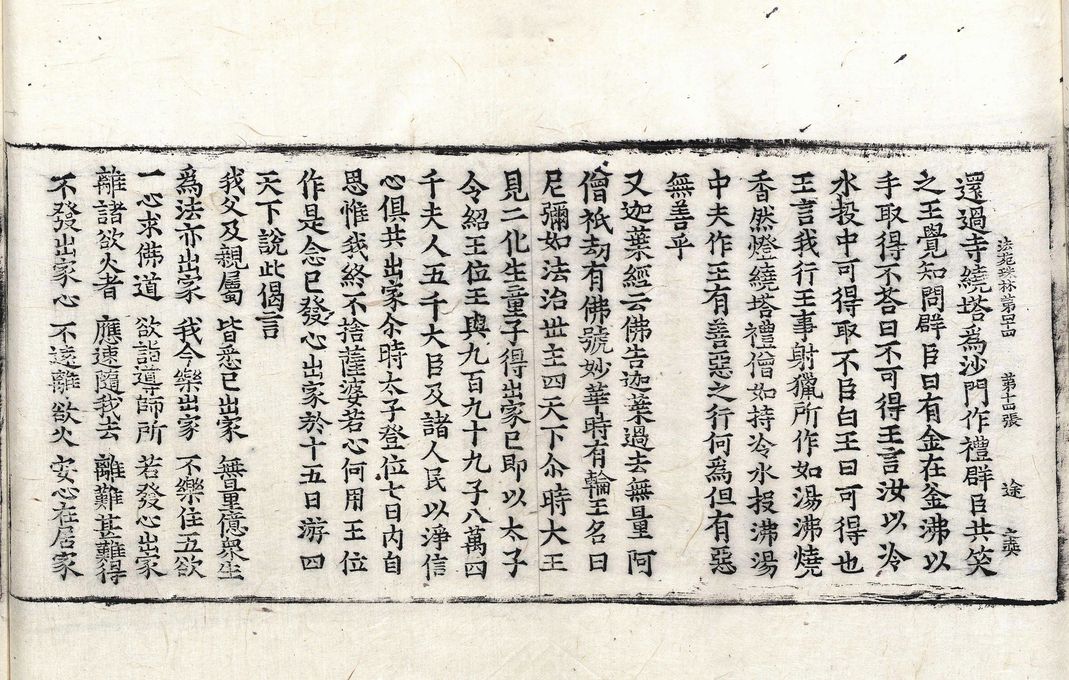 還過寺繞塔爲沙門作禮群臣共笑
法苑珠林第四十四 第十四張 途
之王覺知問群臣曰有金在釜沸以
手取得不荅曰不可得王言汝以冷
水投中可得取不臣白王曰可得也
王言我行王事射獵所作如湯沸燒
香然燈繞塔禮僧如持冷水投沸湯
中夫作王有善惡之行何為但有惡
無善乎
又迦葉經云佛告迦葉過去無量阿
僧祇劫有佛號妙華時有輪王名曰
尼彌如法治世主四天下尒時大王
見二化生童子得出家已即以太子
令紹王位王與九百九十九子八萬四
千夫人五千大臣及諸人民以淨信
心俱共出家尒時太子登位七日內自
思惟我終不捨薩婆若心何用王位
作是念已發心出家於十五日游四
天下說此偈言
我父及親屬 皆悉已出家 無量億衆生
爲法亦出家 我今樂出家 不樂住五欲
一心求佛道 欲詣導師所 若發心出家
離諸欲火者 應速隨我去 離難甚難得
不發出家心 不遠離欲火 安心在居家